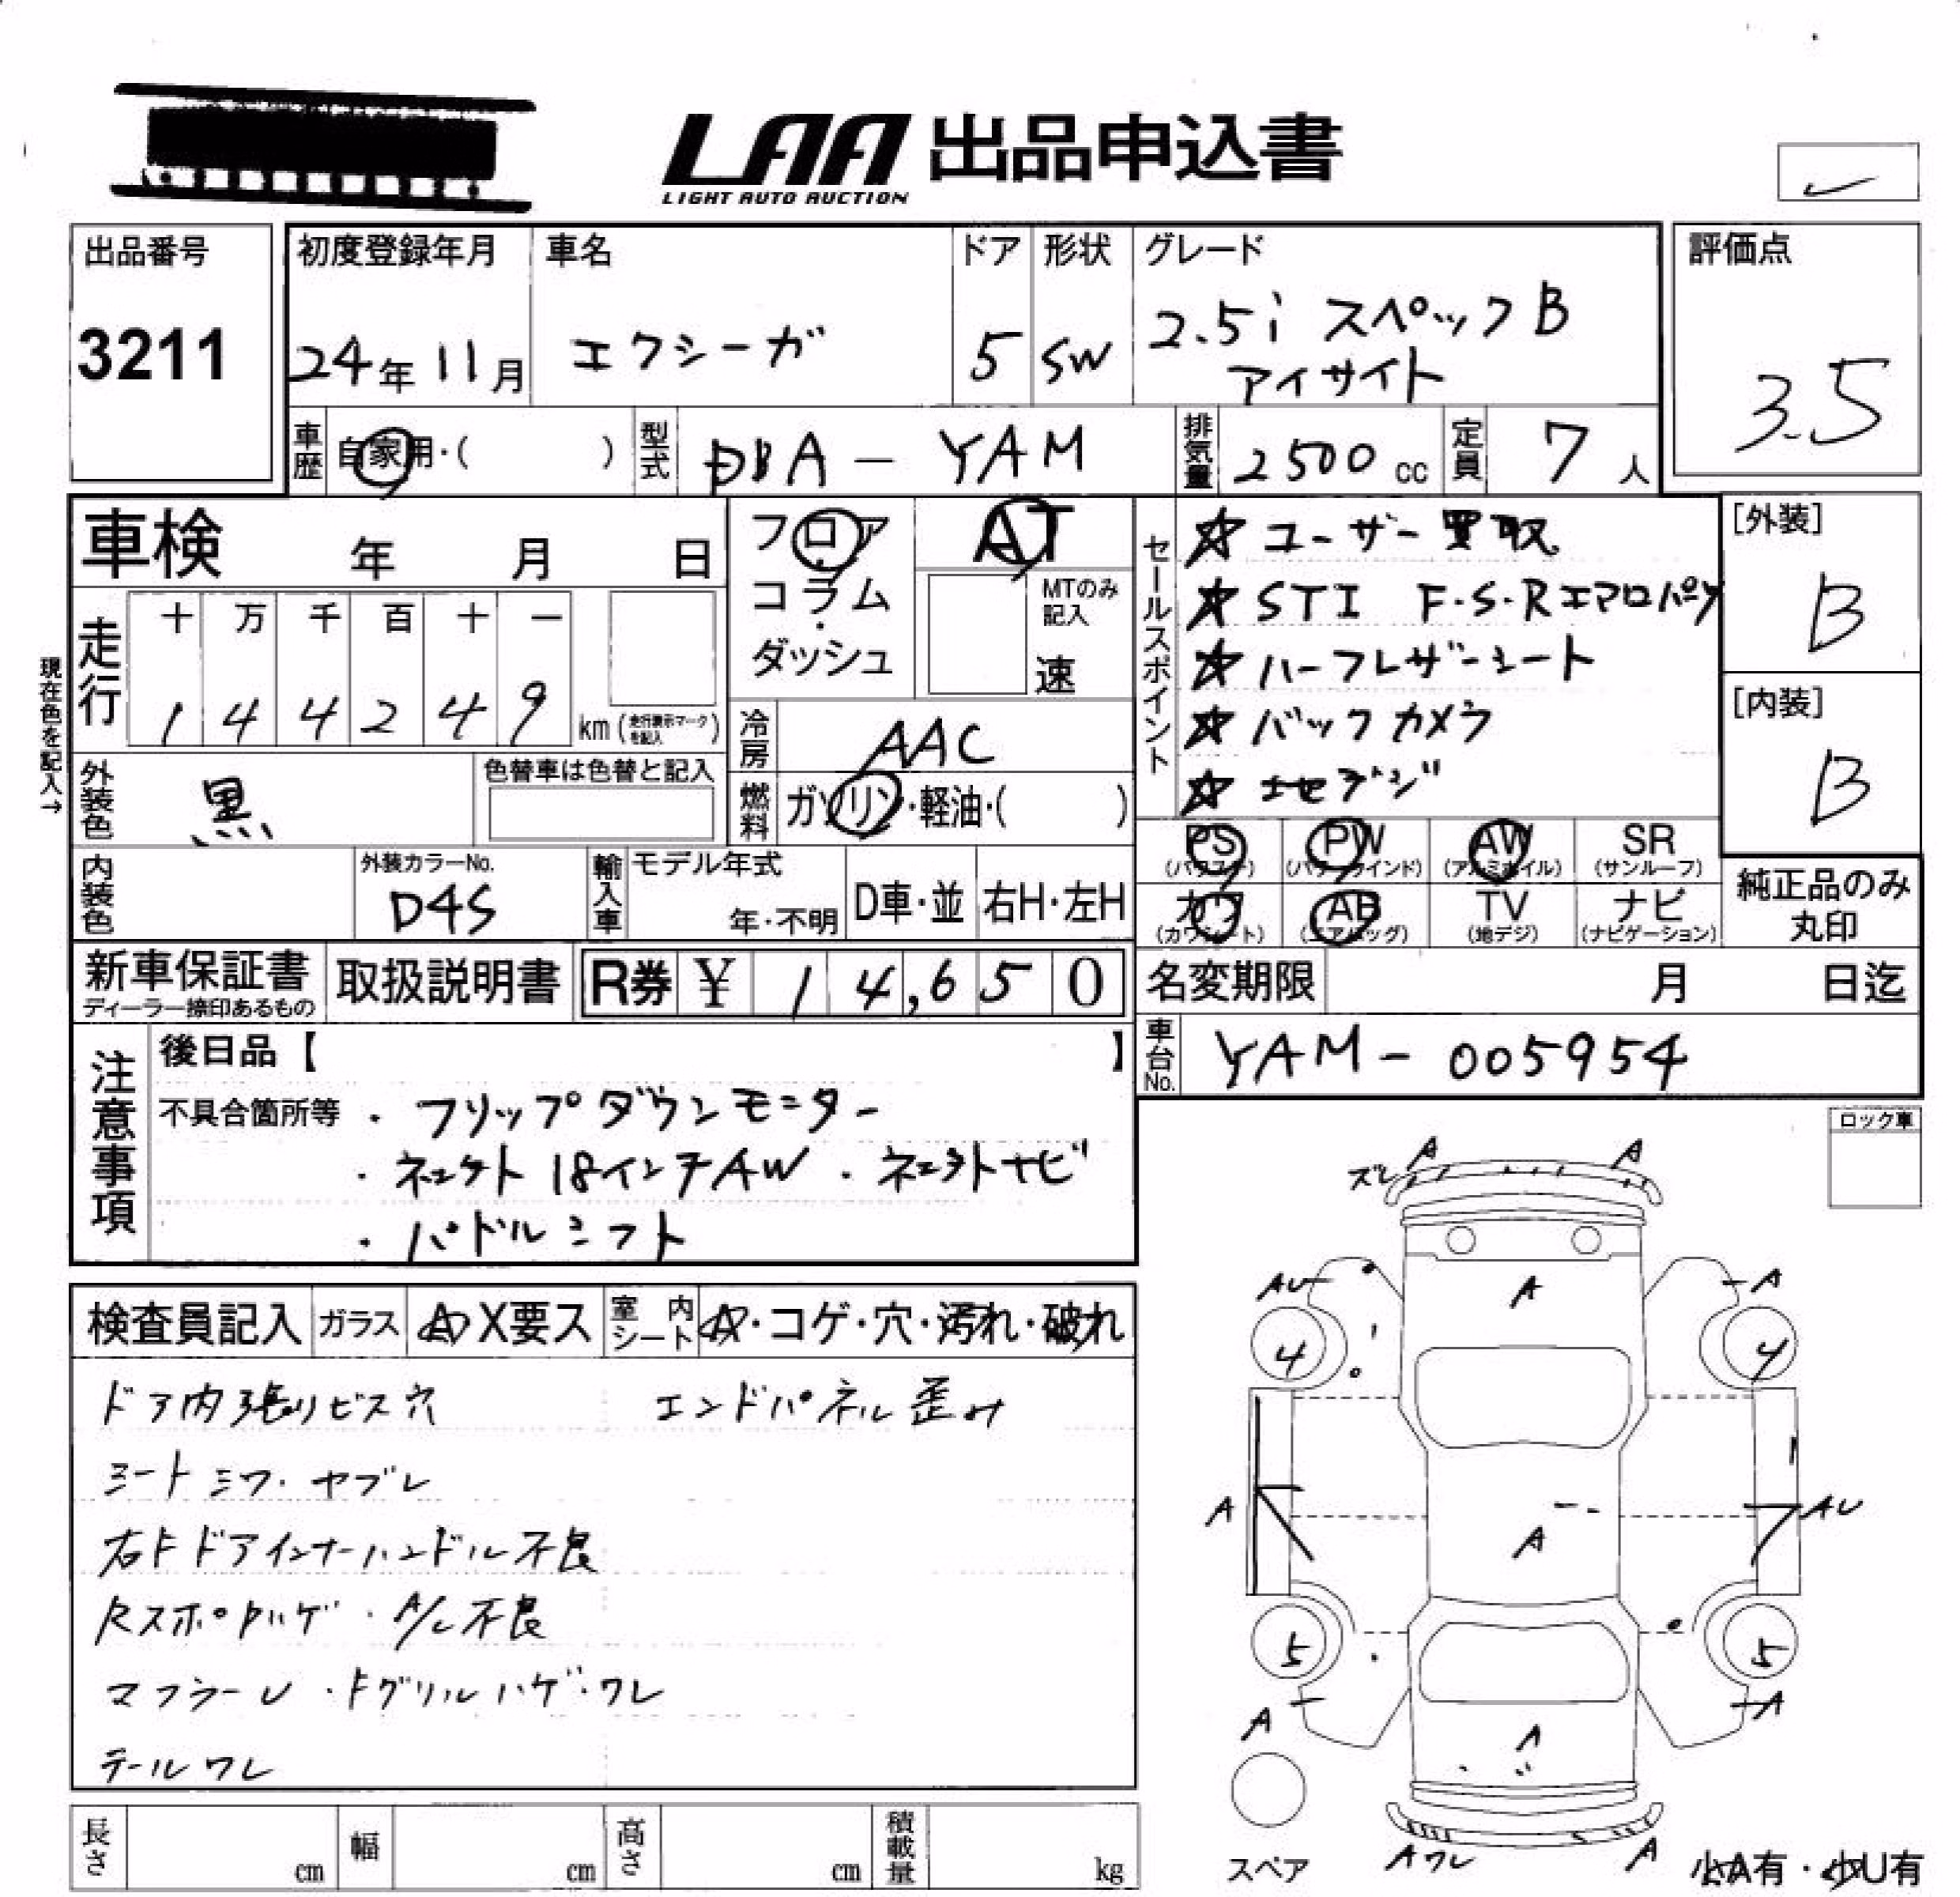 LAA 出品申込書
LIGHT AUTO AUCTION
出品番号
3211
初度登録年月
24年11月
車名
エクシーガ
ドア
5
形状
SW
グレード
2.5i スペックB
アイサイト
評価点
3.5
車歴
自家用・( )
型式
DBA-YAM
排気量
2500 cc
定員
7人
車検 年 月 日
フロア・コラム・ダッシュ
AT
MTのみ記入
速
セールスポイント
☆ユーザー買取
☆STI F・S・Rエアロパーツ
☆ハーフレザーシート
☆バックカメラ
[外装]
B
[内装]
B
現在色を記入→
走行
十 万 千 百 十 一
1 4 4 2 4 9 km (走行表示マークを記入)
冷房
AAC
外装色
黒
色替車は色替と記入
燃料
ガソリン・軽油・( )
PS
(パワステ)
PW
(パワーウインド)
AW
(アルミホイル)
SR
(サンルーフ)
内装色
外装カラーNo.
D4S
輸入車
モデル年式
年・不明
D車・並
右H・左H
カワ
(カワシート)
AB
(エアバッグ)
TV
(地デジ)
ナビ
(ナビゲーション)
純正品のみ
丸印
新車保証書
ディーラー捺印あるもの
取扱説明書
R券 ¥ 14,650
名変期限 月 日迄
車台No.
YAM-005954
注意事項
後日品【 】
不具合箇所等 ・フリップダウンモニター
・ネェクト 18インチAW ・ネェクトナビ
・パドルシフト
ロック車
検査員記入
ガラス
A X要ス
室内シート
A・コゲ・穴・汚れ・破れ
ドア内張りビス穴 エンドパネル歪み
シートシワ・ヤブレ
右Fドアインナーハンドル不良
RスポPハゲ・A/C不良
マフラーU・Fグリルハゲ・ワレ
テールワレ
ズレ A A
AU A A
4 4
A A AU
5 5
A A A
Aワレ A
スペア
少A有・少U有
長さ cm
幅 cm
高さ cm
積載量 kg